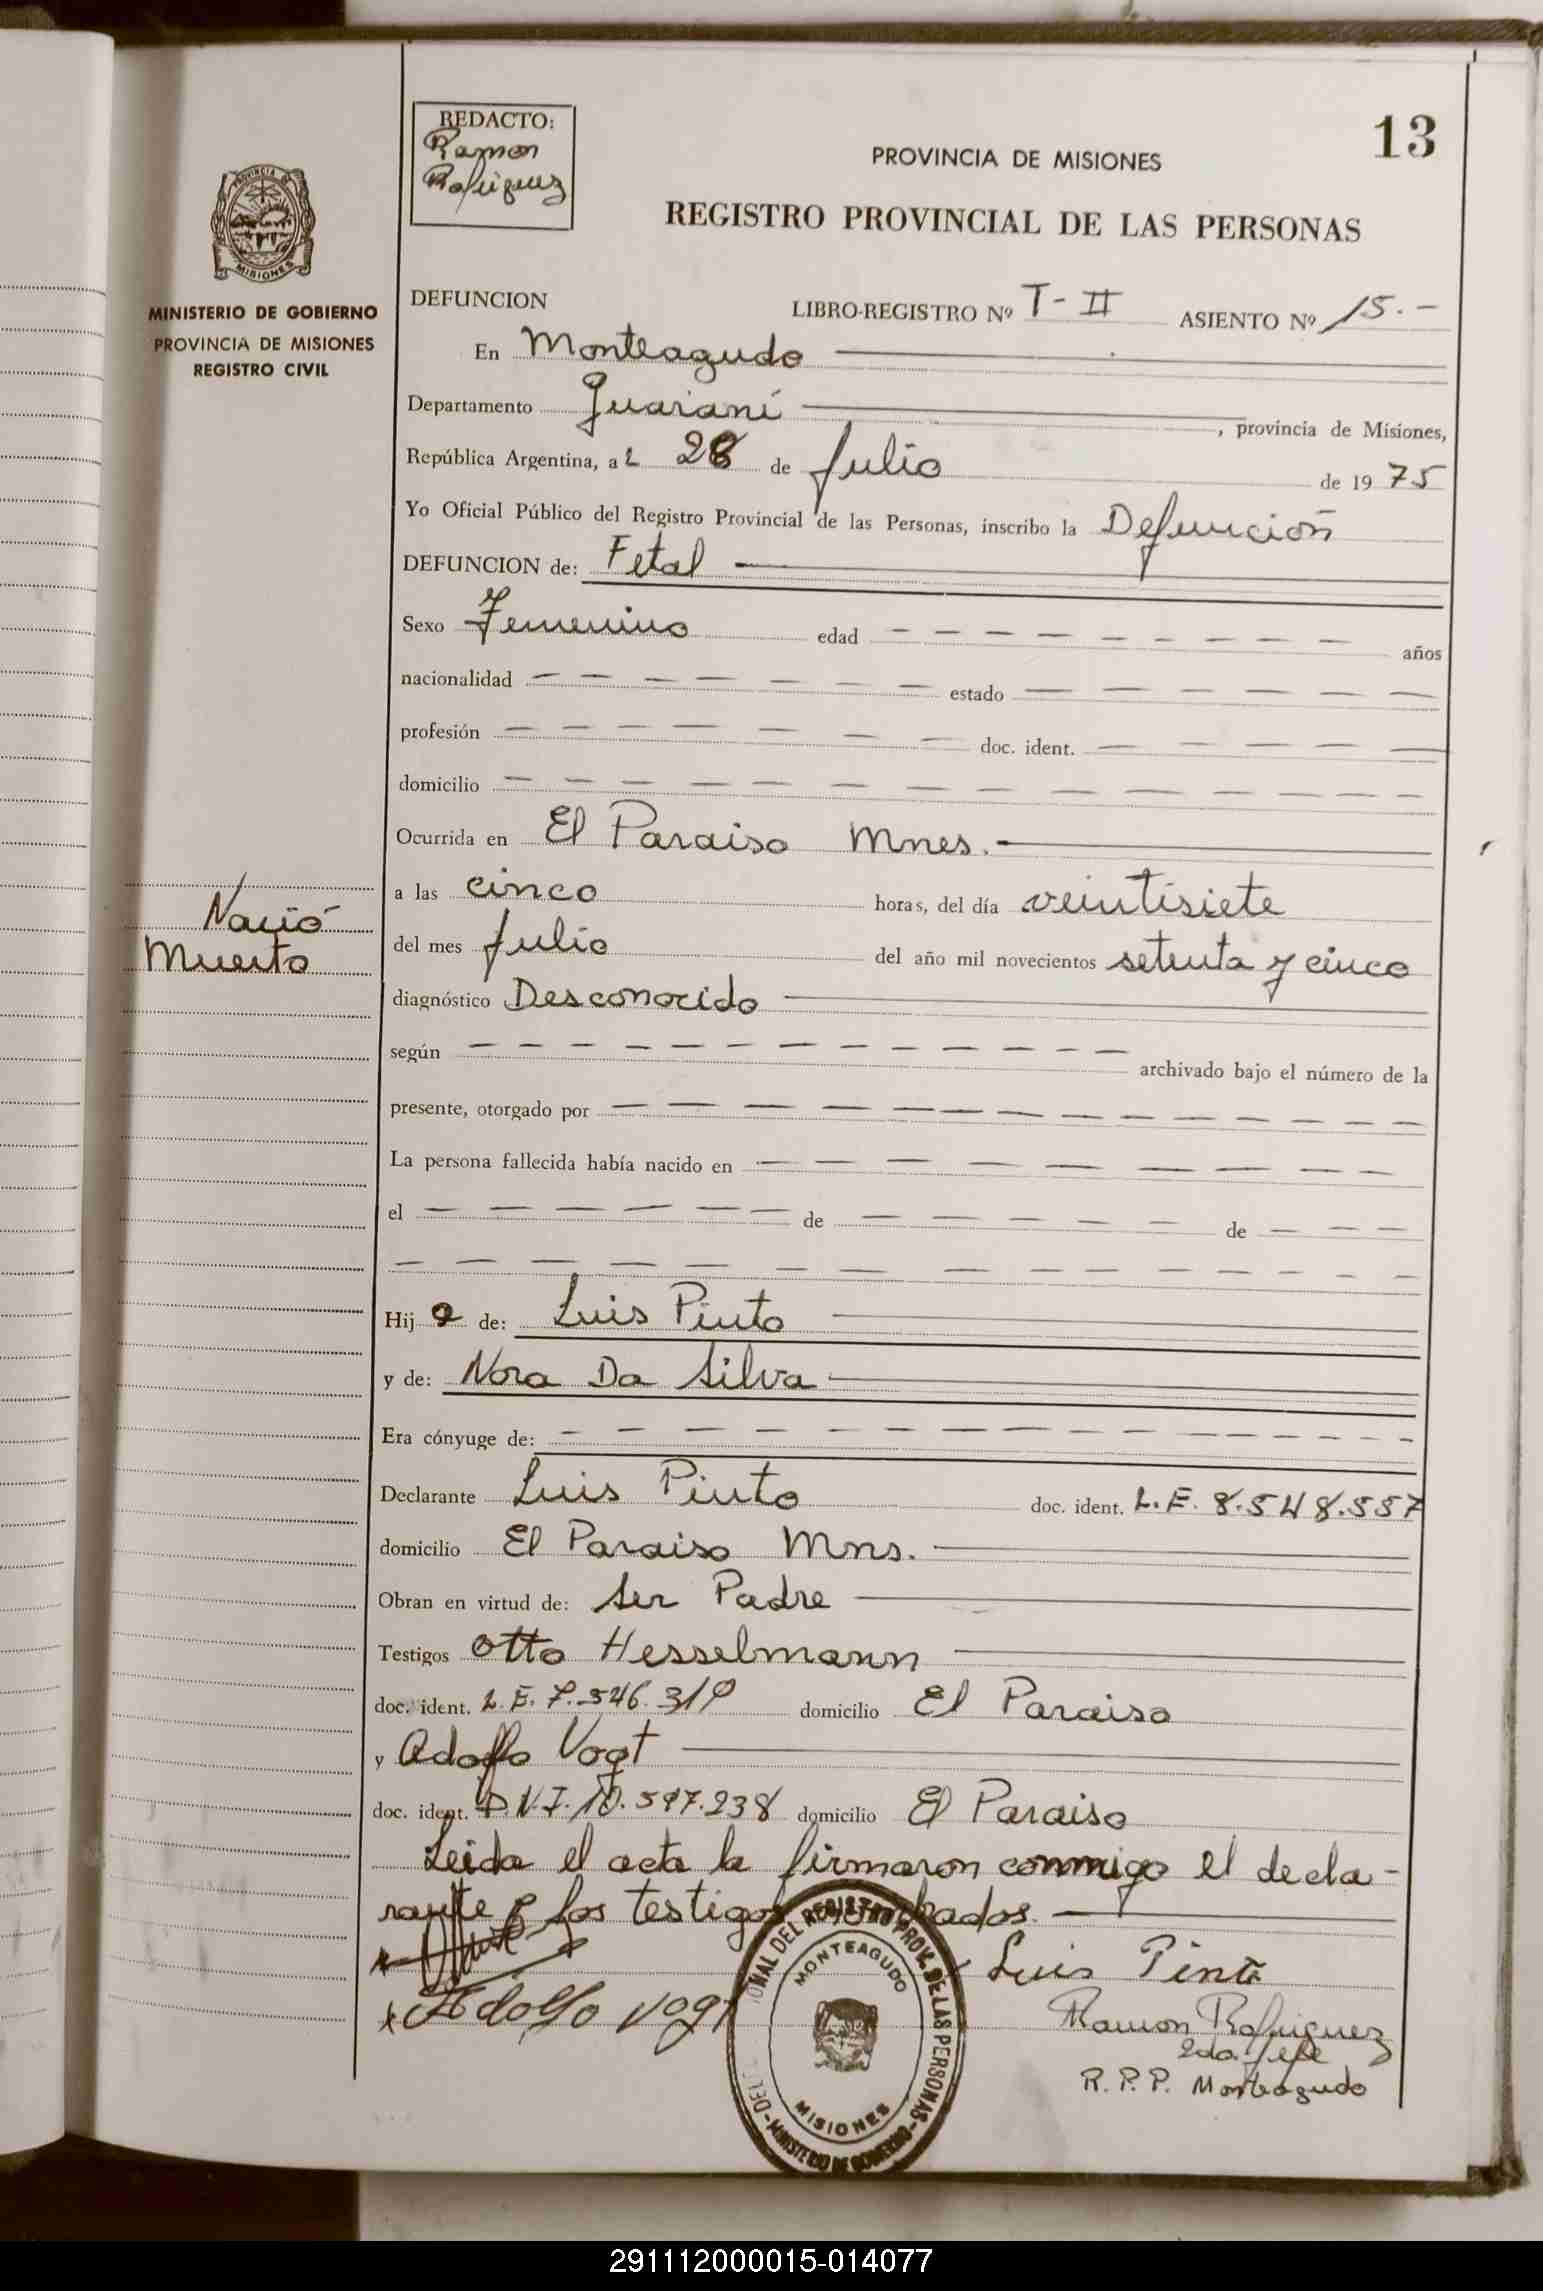 13
REDACTO:
Ramon
Rodriguez
PROVINCIA DE MISIONES
REGISTRO PROVINCIAL DE LAS PERSONAS
PROVINCIA DE
MISIONES
MINISTERIO DE GOBIERNO
PROVINCIA DE MISIONES
REGISTRO CIVIL
DEFUNCION LIBRO-REGISTRO Nº T-II ASIENTO Nº 15.-
En Monteagudo
Departamento Guaraní, provincia de Misiones,
República Argentina, a L 28 de Julio de 1975
Yo Oficial Público del Registro Provincial de las Personas, inscribo la Defunción
DEFUNCION de: Fetal
Sexo Femenino edad años
nacionalidad estado
profesión doc. ident.
domicilio
Ocurrida en El Paraiso Mnes.
a las cinco horas, del día veintisiete
Nació
Muerto
del mes Julio del año mil novecientos setenta y cinco
diagnóstico Desconocido
según archivado bajo el número de la
presente, otorgado por
La persona fallecida había nacido en
el de de
Hij a de: Luis Pinto
y de: Nora Da Silva
Era cónyuge de:
Declarante Luis Pinto doc. ident. L.E. 8.548.557
domicilio El Paraiso Mns.
Obran en virtud de: Ser Padre
Testigos Otto Hesselmann
doc. ident. L.E. 7.546.319 domicilio El Paraiso
y Adolfo Vogt
doc. ident. D.N.I. 10.597.238 domicilio El Paraiso
Leida el acta la firmaron conmigo el decla-
rante y los testigos nombrados.
Luis Pinto
Adolfo Vogt
Ramon Rodriguez
2do. Jefe
R.P.P. Monteagudo
DEL REGISTRO PROV. DE LAS PERSONAS - MINISTERIO DE GOBIERNO
MONTEAGUDO
MISIONES
291112000015-014077